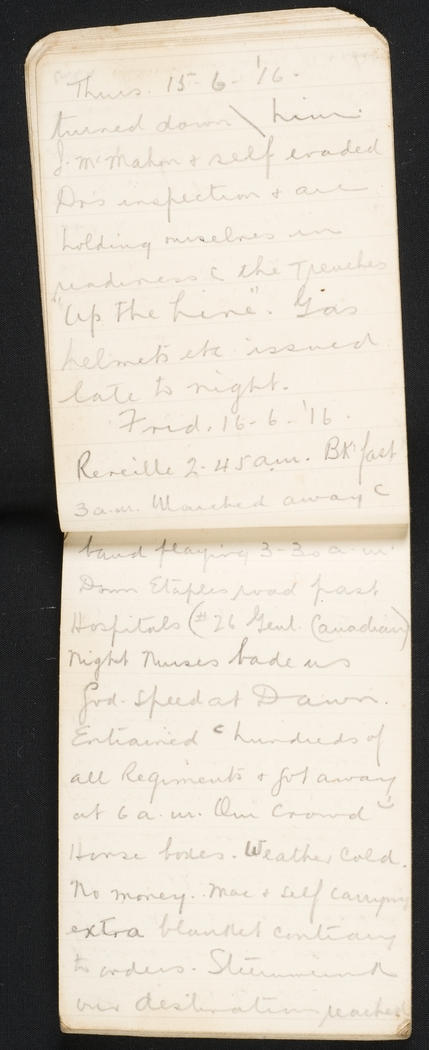 Thurs. 15-6-'16.
turned down \ him.
J. McMahon & self evaded
Dr's inspection & are
holding ourselves in
readiness c the Trenches
"Up the Line". Gas
helmets etc issued
late to night.
Frid. 16-6-'16.
Reveille 2-45 a.m. Bk'fast
3 a.m. Marched away c
band playing 3-30 a.m.
Down Etaples road past
Hospitals (#26 Genl. Canadian)
Night Nurses bade us
God-speed at Dawn.
Entrained c hundreds of
all Regiments & got away
at 6 a.m. Our crowd
Horse boxes. Weather Cold.
No money. Mac & self carrying
extra blanket contrary
to orders. Steenwerck
our destination reached